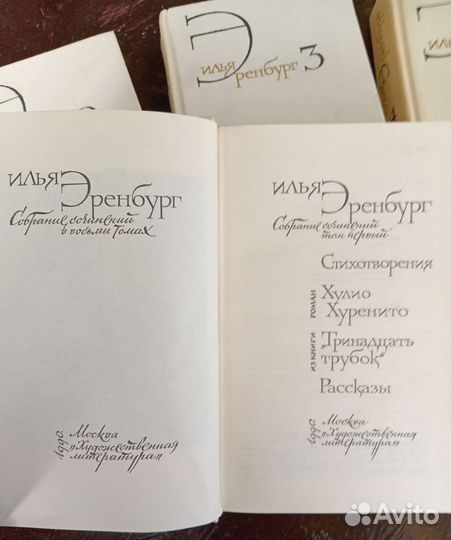 Илья
Эренбург 3
Илья Эренбург
Собрание сочинений
в восьми томах
1990. Москва
"Художественная
литература"
Илья Эренбург
Собрание сочинений
том первый
Стихотворения
роман Хулио
Хуренито
из книги "Тринадцать
трубок"
Рассказы
1990. Москва
"Художественная
литература"
Avito